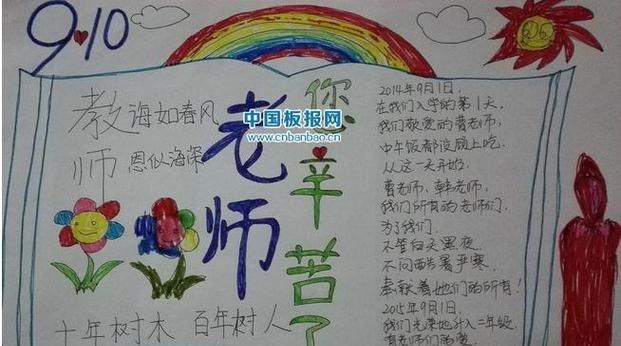 9.10
教海如春风
师恩似海深
老师
您辛苦了
十年树木 百年树人
中国板报网
www.cnbanbao.cn
2014年9月1日.
在我们入学的第1天,
我们敬爱的曹老师,
中午饭都没顾上吃.
从这一天开始.
曹老师、韩老师,
我们所有的老师们.
为了我们.
不管白天黑夜.
不问酷暑严寒.
奉献着她们的所有!
2015年9月1日.
我们光荣地升入二年级.
有老师们的爱